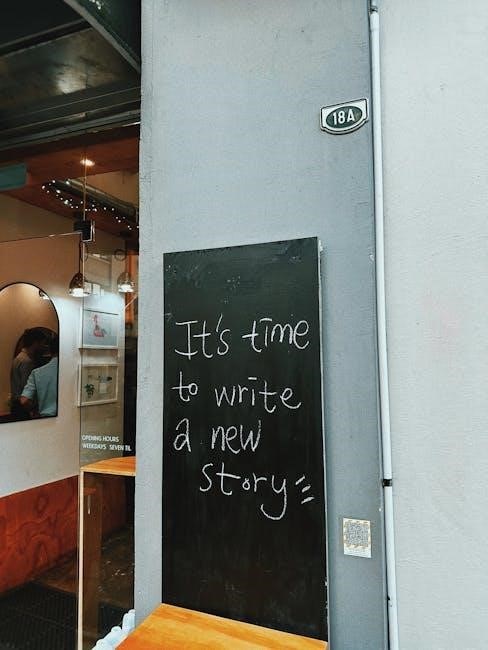 18A
It's time
to write
a new
story
OPENING HOURS
WEEKDAYS SEVEN TIL